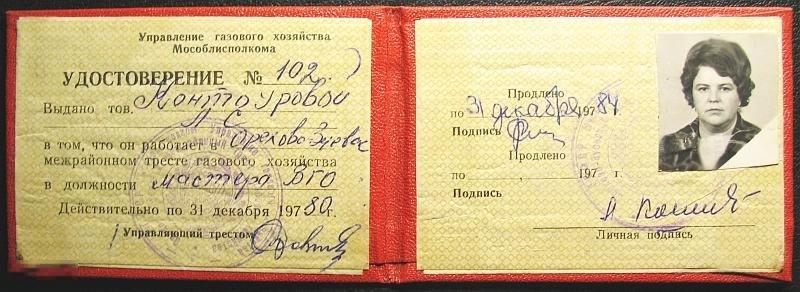 Управление газового хозяйства
Мособлисполкома
УДОСТОВЕРЕНИЕ № 102
Выдано тов. Контауровой
Л С
в том, что он работает в Орехово-Зуевс
межрайонном тресте газового хозяйства
в должности мастера БГО
Действительно по 31 декабря 197 80 г.
Управляющий трестом
Продлено
по 31 декабря 197 84
Подпись
Продлено
по , 197 г.
Подпись
Личная подпись